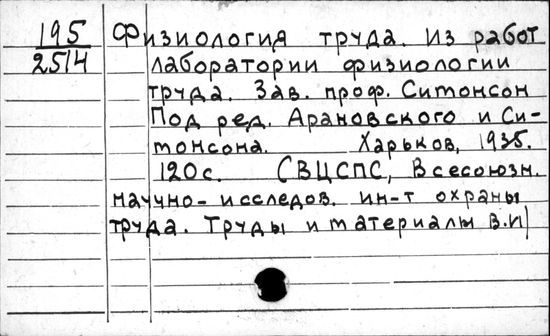 195 Физиология труда. Из работ
2514 лаборатории физиологии
труда. Зав. проф. Ситонсон
Под ред. Арановского и Си-
тонсона. Харьков, 1935.
120 с. (ВЦСПС, Всесоюзн.
научно-исследов. ин-т охраны
труда. Труды и материалы в.И)